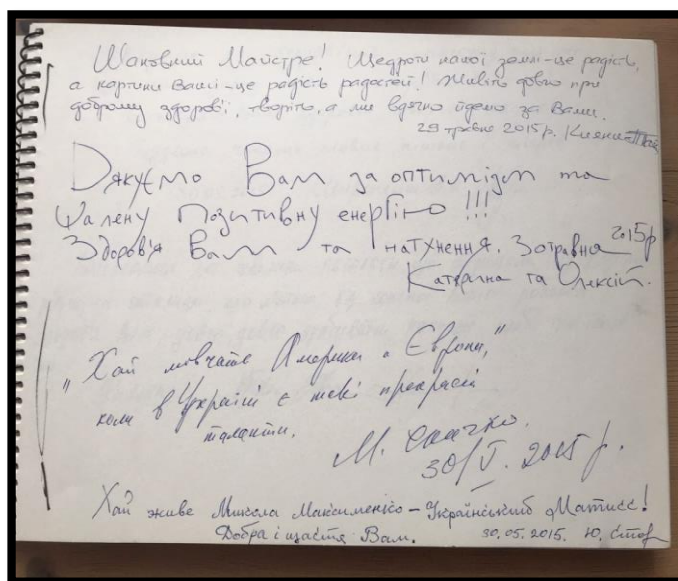 Шановний Майстре! Щедроти нашої землі - це радість,
а картини Ваші - це радість радостей! Живіть довго при
доброму здоров'ї, творіть, а ми вдячно йдемо за Вами.
29 травня 2015 р. Кияни
Дякуємо Вам за оптимізм та
шалену позитивну енергію !!!
Здоров'я Вам та натхнення. 30 травня 2015 р
Катерина та Олексій.
"Хай мовчать Америка і Європи,"
коли в Україні є такі прекрасні
таланти.
М.
30/V. 2015 р.
Хай живе Микола Максименко - Український Матисс!
Добра і щастя Вам. 30.05.2015. Ю.